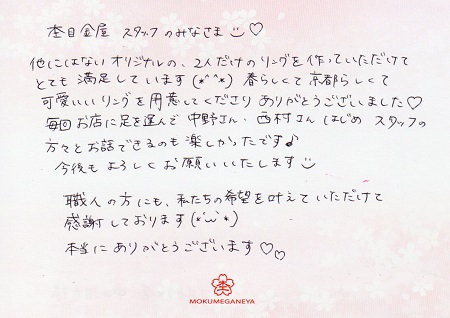 杢目金屋 スタッフのみなさま☺♡
他にはない オリジナルの、2人だけのリングを作っていただけて
とても 満足しています(*^^*) 春らしくて 京都らしくて
可愛いいリングを用意してくださり ありがとうございました♡
毎回お店に足を運んで 中野さん、西村さん はじめ スタッフの
方々とお話できるのも楽しかったです♪
今後も よろしくお願いいたします☺
職人の方にも、私たちの希望を叶えていただけて
感謝しております(*´ω`*)
本当に ありがとうございます♡♡
杢
MOKUMEGANEYA